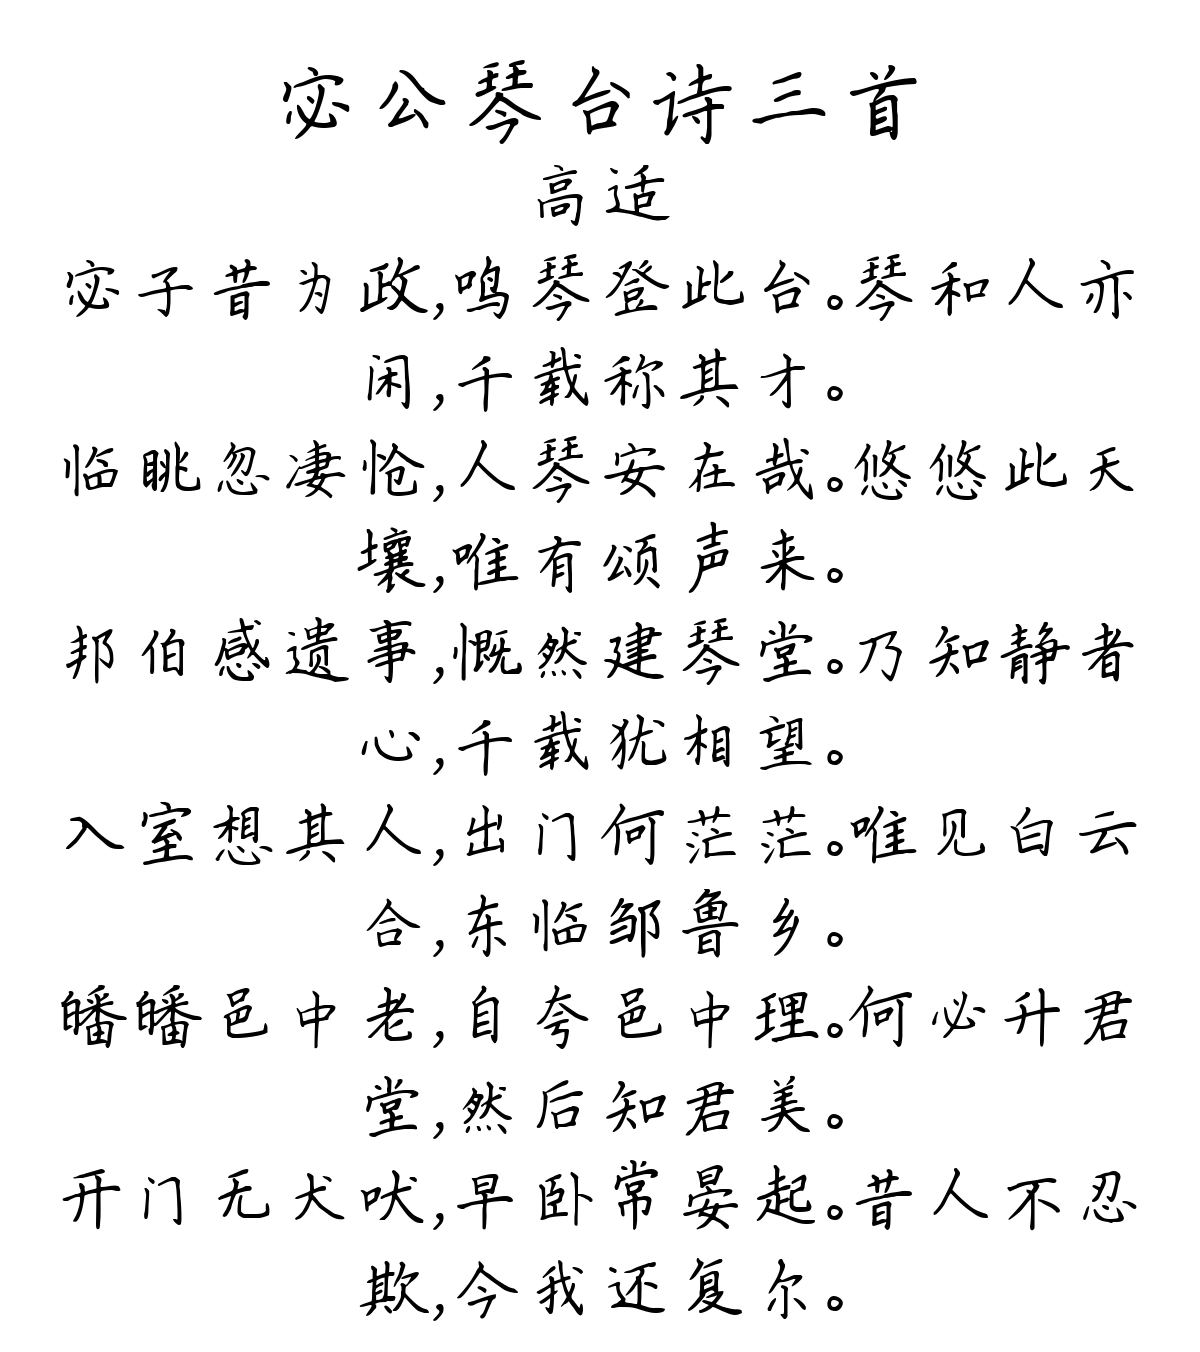 宓公琴台诗三首
高适
宓子昔为政,鸣琴登此台。琴和人亦
闲,千载称其才。
临眺忽凄怆,人琴安在哉。悠悠此天
壤,唯有颂声来。
邦伯感遗事,慨然建琴堂。乃知静者
心,千载犹相望。
入室想其人,出门何茫茫。唯见白云
合,东临邹鲁乡。
皤皤邑中老,自夸邑中理。何必升君
堂,然后知君美。
开门无犬吠,早卧常晏起。昔人不忍
欺,今我还复尔。